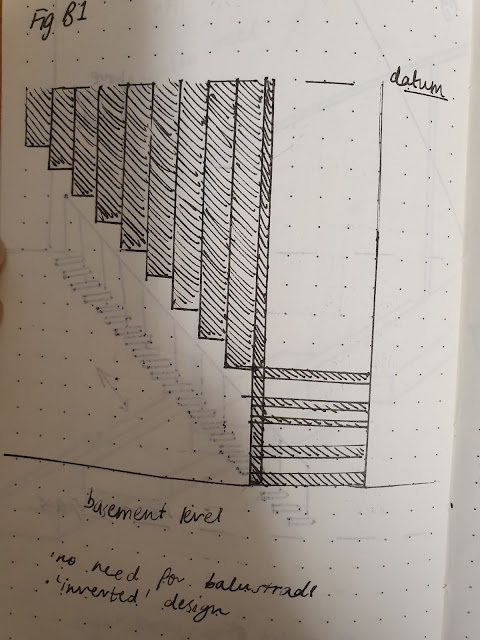 Fig B1
datum
basement level
'no need for balustrade
• 'inverted' design